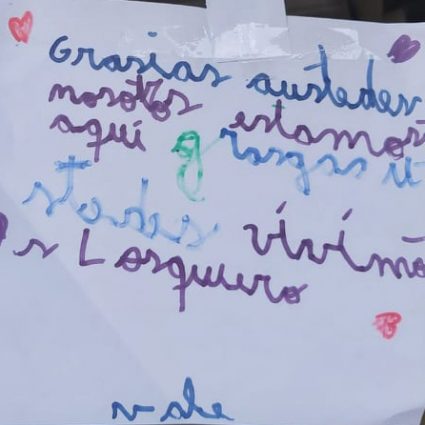 Grasias austedes
nosotros estamos
aquí grasgas u
stedes vivimo
s Losquiero